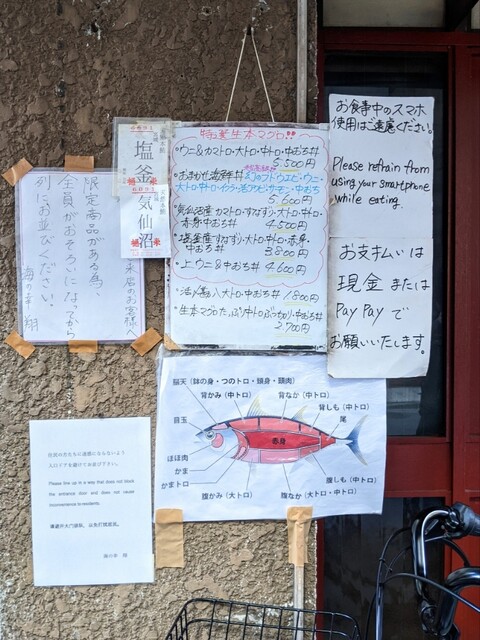 来店のお客様へ
限定商品がある為、
全員がおそろいになってから
列にお並びください！
海の幸 翔
塩釜
気仙沼
特選生本マグロ!!
・ウニ&カマトロ・大トロ・中トロ・中おち丼
5,500円
・おまかせ海鮮丼
大トロ・中トロ・イクラ・活〆
5,600円
・気仙沼産 カマトロ・すなずり・大トロ・中トロ・
赤身中おち丼 4,500円
・塩釜産すなずり・大トロ・中トロ・赤身・
中おち丼 3,800円
・上ウニ&中おち丼 4,600円
大トロ中おち丼 1,800円
・生本マグロたっぷり中トロぶっちぎり中おち丼
2,700円
お食事中のスマホ
使用はご遠慮ください。
Please refrain from
using your smartphone
while eating.
お支払いは
現金 または
PayPay で
お願いいたします。
脳天（鉢の身・つのトロ・頭身・頭肉）
背かみ（中トロ）
背なか（中トロ）
背しも（中トロ）
尾
目玉
赤身
ほほ肉
かま
かまトロ
腹かみ（大トロ）
腹なか（大トロ・中トロ）
腹しも（中トロ）
住民の方たちに迷惑にならないよう、
入口ドアを避けてお並び下さい。
Please line up in a way that does not block
the entrance door and does not cause
inconvenience to residents.
海の幸 翔